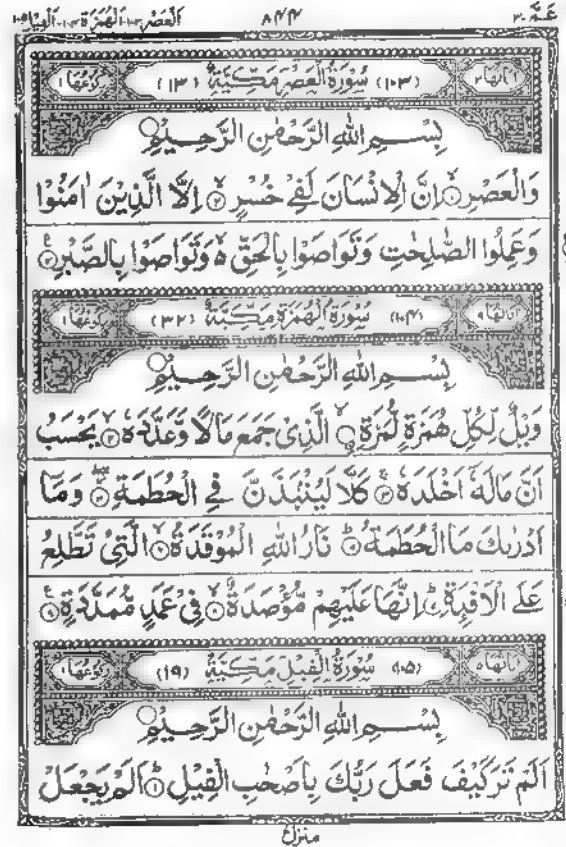 العصر ١٠٣ الهمزة ١٠٤ الفيل ١٠٥ ٨٤٤ عمّ ٣٠
اٰيَاتُهَا ٣ (١٠٣) سُوۡرَةُ الۡعَصۡرِ مَكِّيَّةٌ (١٣) رُكُوۡعُهَا ١
بِسۡمِ اللهِ الرَّحۡمٰنِ الرَّحِيۡمِ
وَالۡعَصۡرِ ۙ﴿۱﴾ اِنَّ الۡاِنۡسَانَ لَفِىۡ خُسۡرٍ ۙ﴿۲﴾ اِلَّا الَّذِيۡنَ اٰمَنُوۡا
وَعَمِلُوا الصّٰلِحٰتِ وَتَوَاصَوۡا بِالۡحَقِّ ۙ وَتَوَاصَوۡا بِالصَّبۡرِ ﴿۳﴾ ع
اٰيَاتُهَا ٩ (١٠٤) سُوۡرَةُ الۡهُمَزَةِ مَكِّيَّةٌ (٣٢) رُكُوۡعُهَا ١
بِسۡمِ اللهِ الرَّحۡمٰنِ الرَّحِيۡمِ
وَيۡلٌ لِّكُلِّ هُمَزَةٍ لُّمَزَةِ ۙ﴿۱﴾ الَّذِىۡ جَمَعَ مَالًا وَّعَدَّدَهٗ ۙ﴿۲﴾ يَحۡسَبُ
اَنَّ مَالَهٗۤ اَخۡلَدَهٗ ۚ﴿۳﴾ كَلَّا لَيُنۡۢبَذَنَّ فِى الۡحُطَمَةِ ۖ﴿۴﴾ وَمَاۤ
اَدۡرٰىكَ مَا الۡحُطَمَةُ ؕ﴿۵﴾ نَارُ اللهِ الۡمُوۡقَدَةُ ۙ﴿۶﴾ الَّتِىۡ تَطَّلِعُ
عَلَى الۡاَفۡـِٕدَةِ ؕ﴿۷﴾ اِنَّهَا عَلَيۡهِمۡ مُّؤۡصَدَةٌ ۙ﴿۸﴾ فِىۡ عَمَدٍ مُّمَدَّدَةٍ ﴿۹﴾
اٰيَاتُهَا ٥ (١٠٥) سُوۡرَةُ الۡفِيۡلِ مَكِّيَّةٌ (١٩) رُكُوۡعُهَا ١
بِسۡمِ اللهِ الرَّحۡمٰنِ الرَّحِيۡمِ
اَلَمۡ تَرَ كَيۡفَ فَعَلَ رَبُّكَ بِاَصۡحٰبِ الۡفِيۡلِ ؕ﴿۱﴾ اَلَمۡ يَجۡعَلۡ
منزل